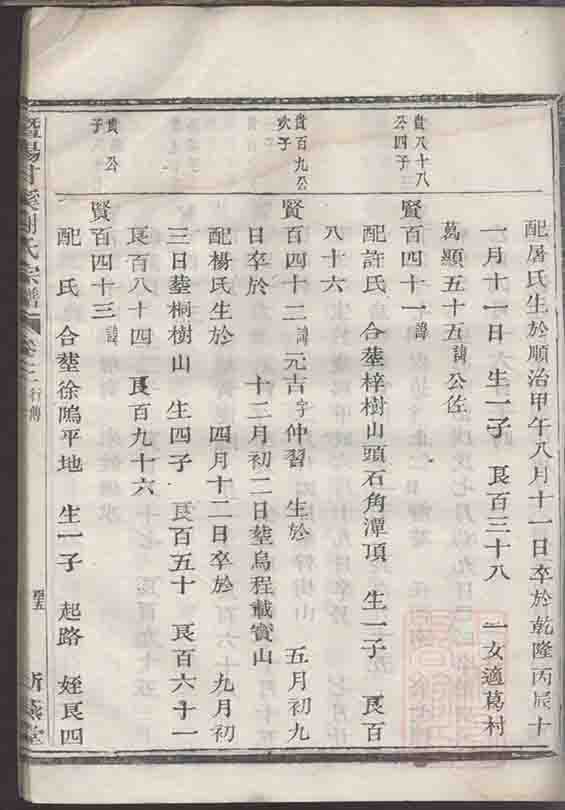 配屠氏生於順治甲午八月十一日卒於乾隆丙辰十
一月十一日 生一子 良百三十八 一女適葛村
葛顯五十五諱公佐
貴八十八
公四子
賢百四十一諱
配許氏 合塟梓樹山頭石角潭頂 生一子 良百
八十六
貴百九公
次子
賢百四十二諱元吉字仲習 生於 五月初九
日卒於 十二月初二日塟烏程載實山
配楊氏生於 四月十二日卒於 九月初
三日塟桐樹山 生四子 良百五十 良百六十一
良百八十四 良百九十六
貴 公
子
賢百四十三諱
配 氏 合塟徐鳴平地 生一子 起路 姪良四
暨陽 氏宗譜
卷 行傳
堂